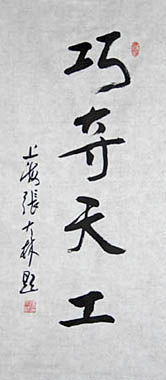 巧夺天工
上海張大林題